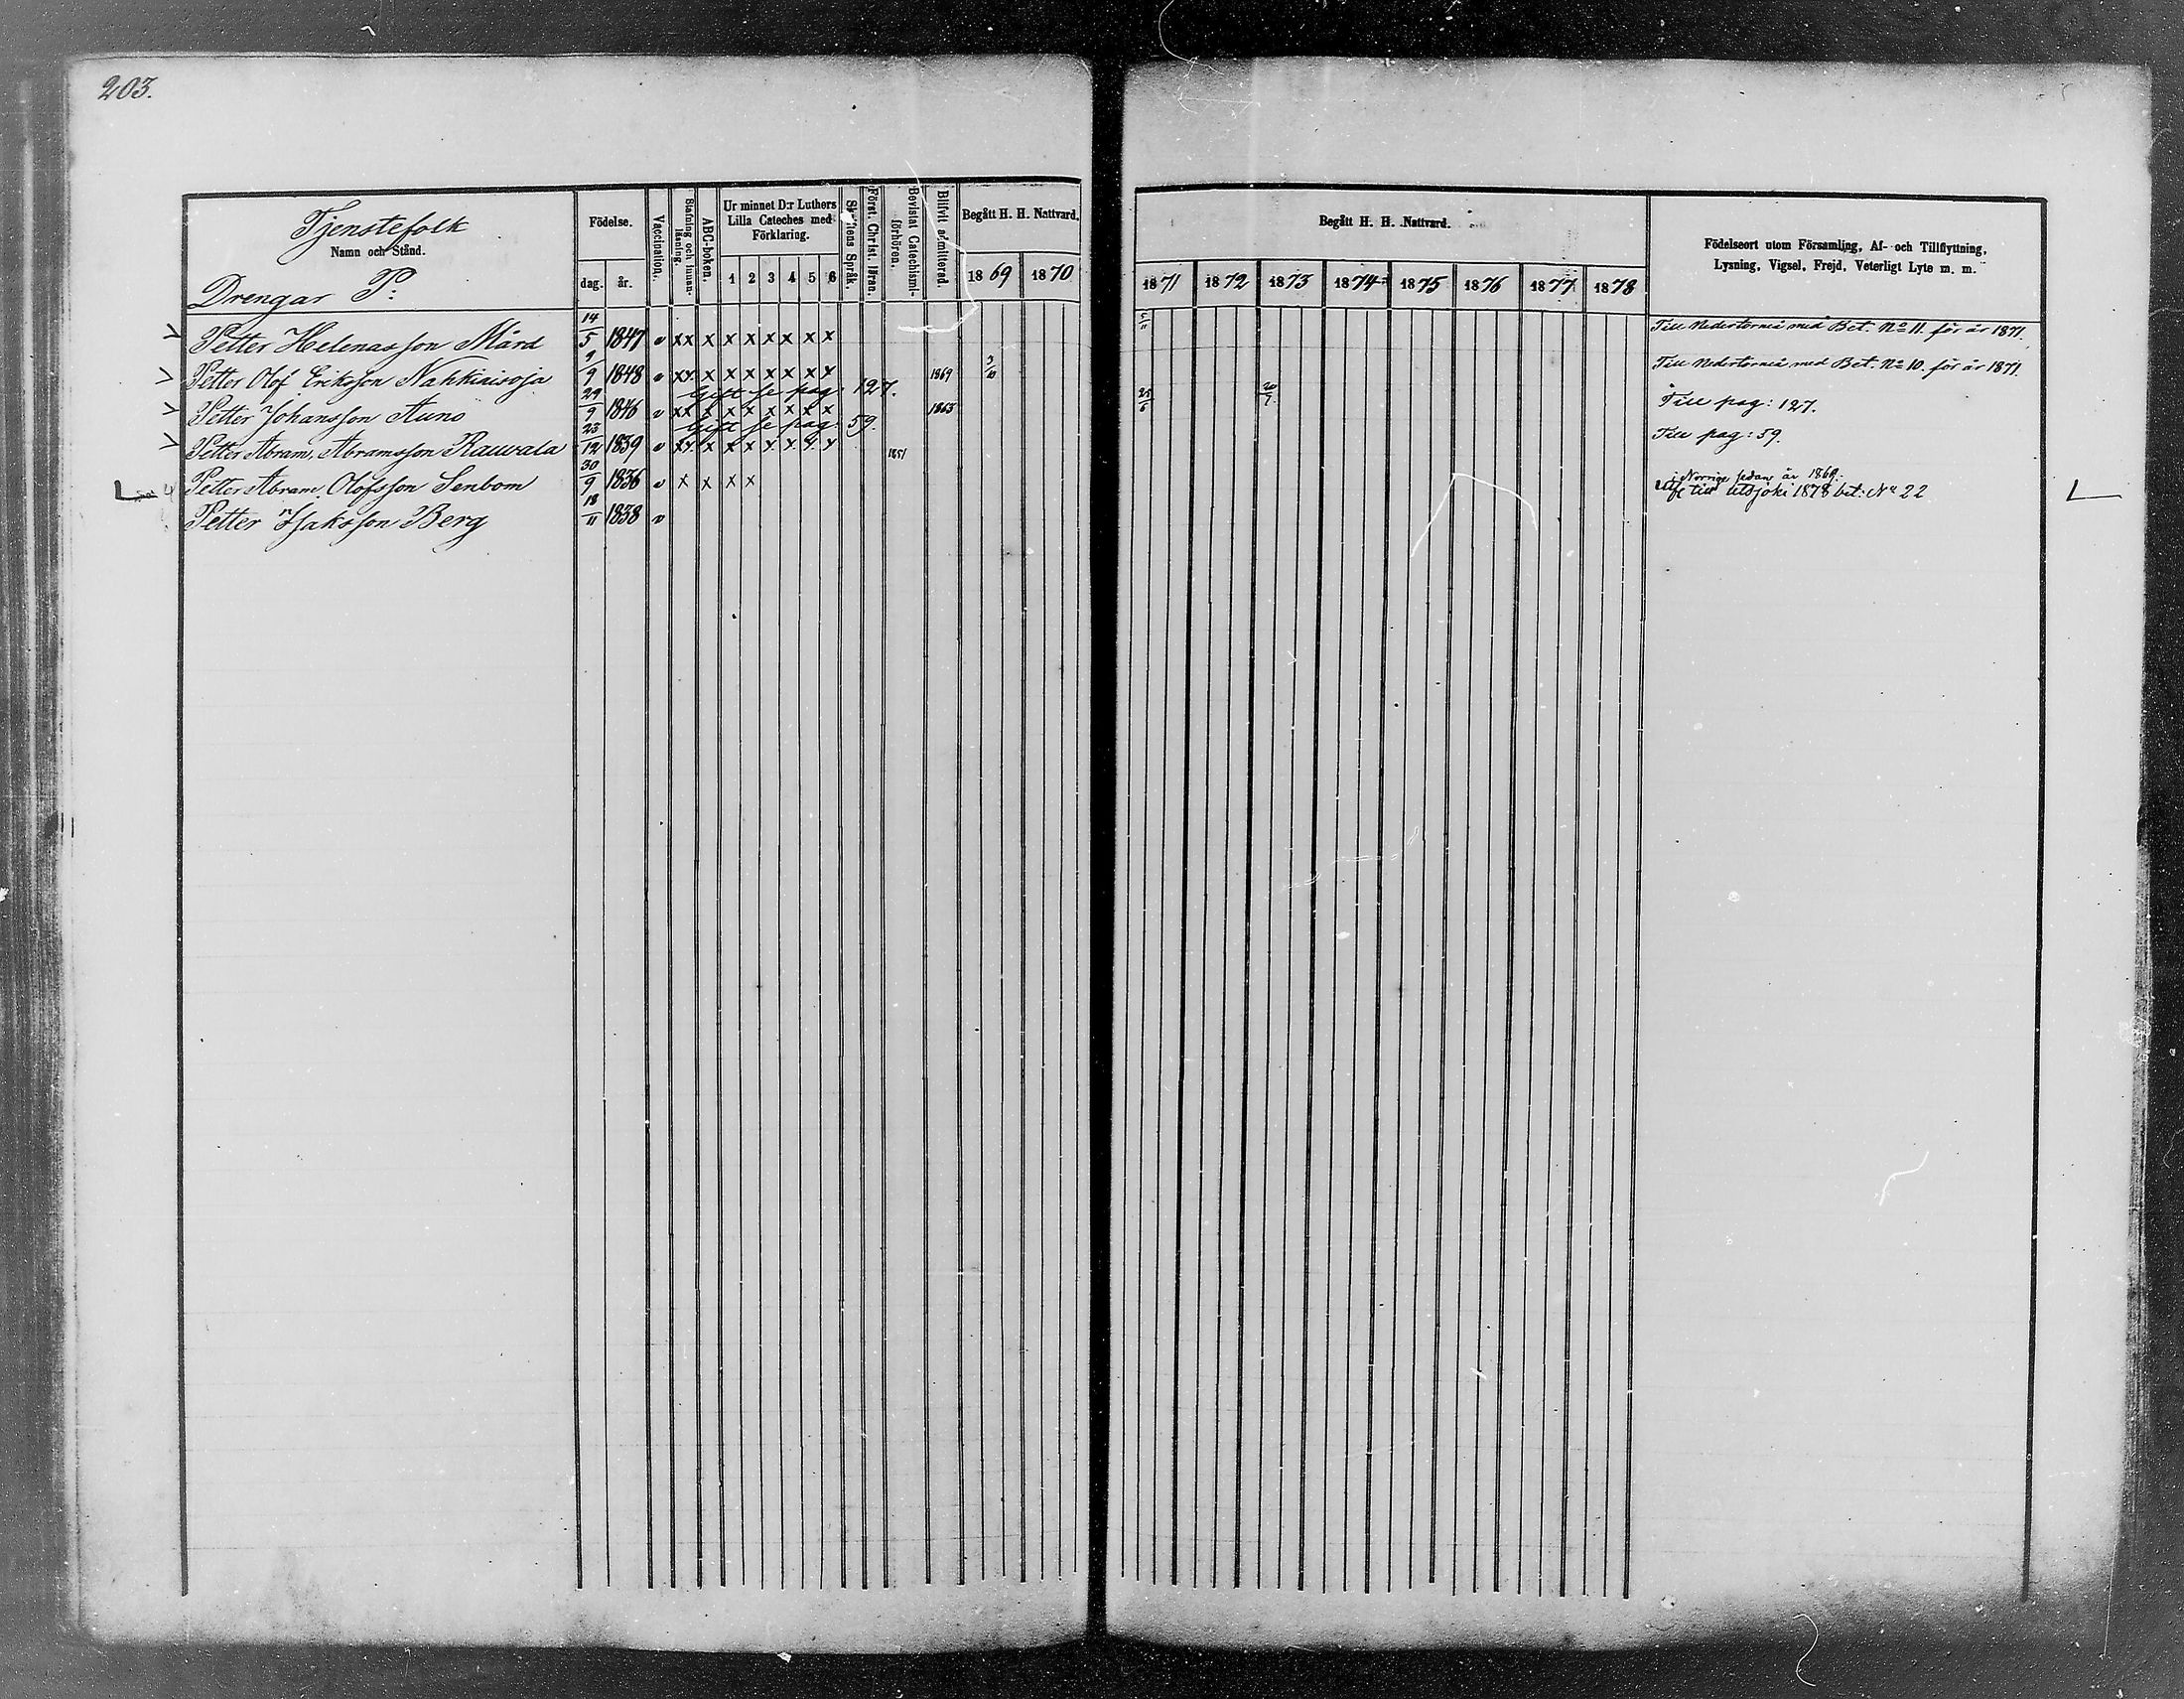 203.
Tjenstefolk
Namn och Stånd.
Drengar P:
Födelse.
dag. år.
Vaccination.
Stafning och innan-läsning.
ABC-boken.
Ur minnet D:r Luthers Lilla Cateches med Förklaring.
1 2 3 4 5 6
Skriftens Språk.
Först. Christ. läran.
Bevistat Catechismi-förhören.
Blifvit admitterad.
Begått H. H. Nattvard.
1869 1870
Begått H. H. Nattvard.
1871 1872 1873 1874 1875 1876 1877 1878
Födelseort utom Församling, Af- och Tillflyttning,
Lysning, Vigsel, Frejd, Veterligt Lyte m. m.
Petter Helenasson Mård 14/5 1847 v xx x x x x x x x Till Nedertorneå med Bet. No 11. för år 1871.
Petter Olof Eriksson Nahkiaisoja 9/9 1848 v xx x x x x x x x 1869 3/10 Till Nedertorneå med Bet. No 10. för år 1871.
Gift se pag: 127.
Petter Johansson Auno 29/9 1846 v xx x x x x x x x 1863 25/6 20/7 Till pag: 127.
Gift se pag: 59.
Petter Abram Abramsson Rauvala 23/12 1839 v xx x x x x x x x 1851 Till pag: 59.
Petter Abram Olofsson Senbom 30/9 1836 v x x x x i Norrige sedan år 1869.
till Utsjoki 1878 bet: No 22
Petter Isaksson Berg 18/11 1838 v